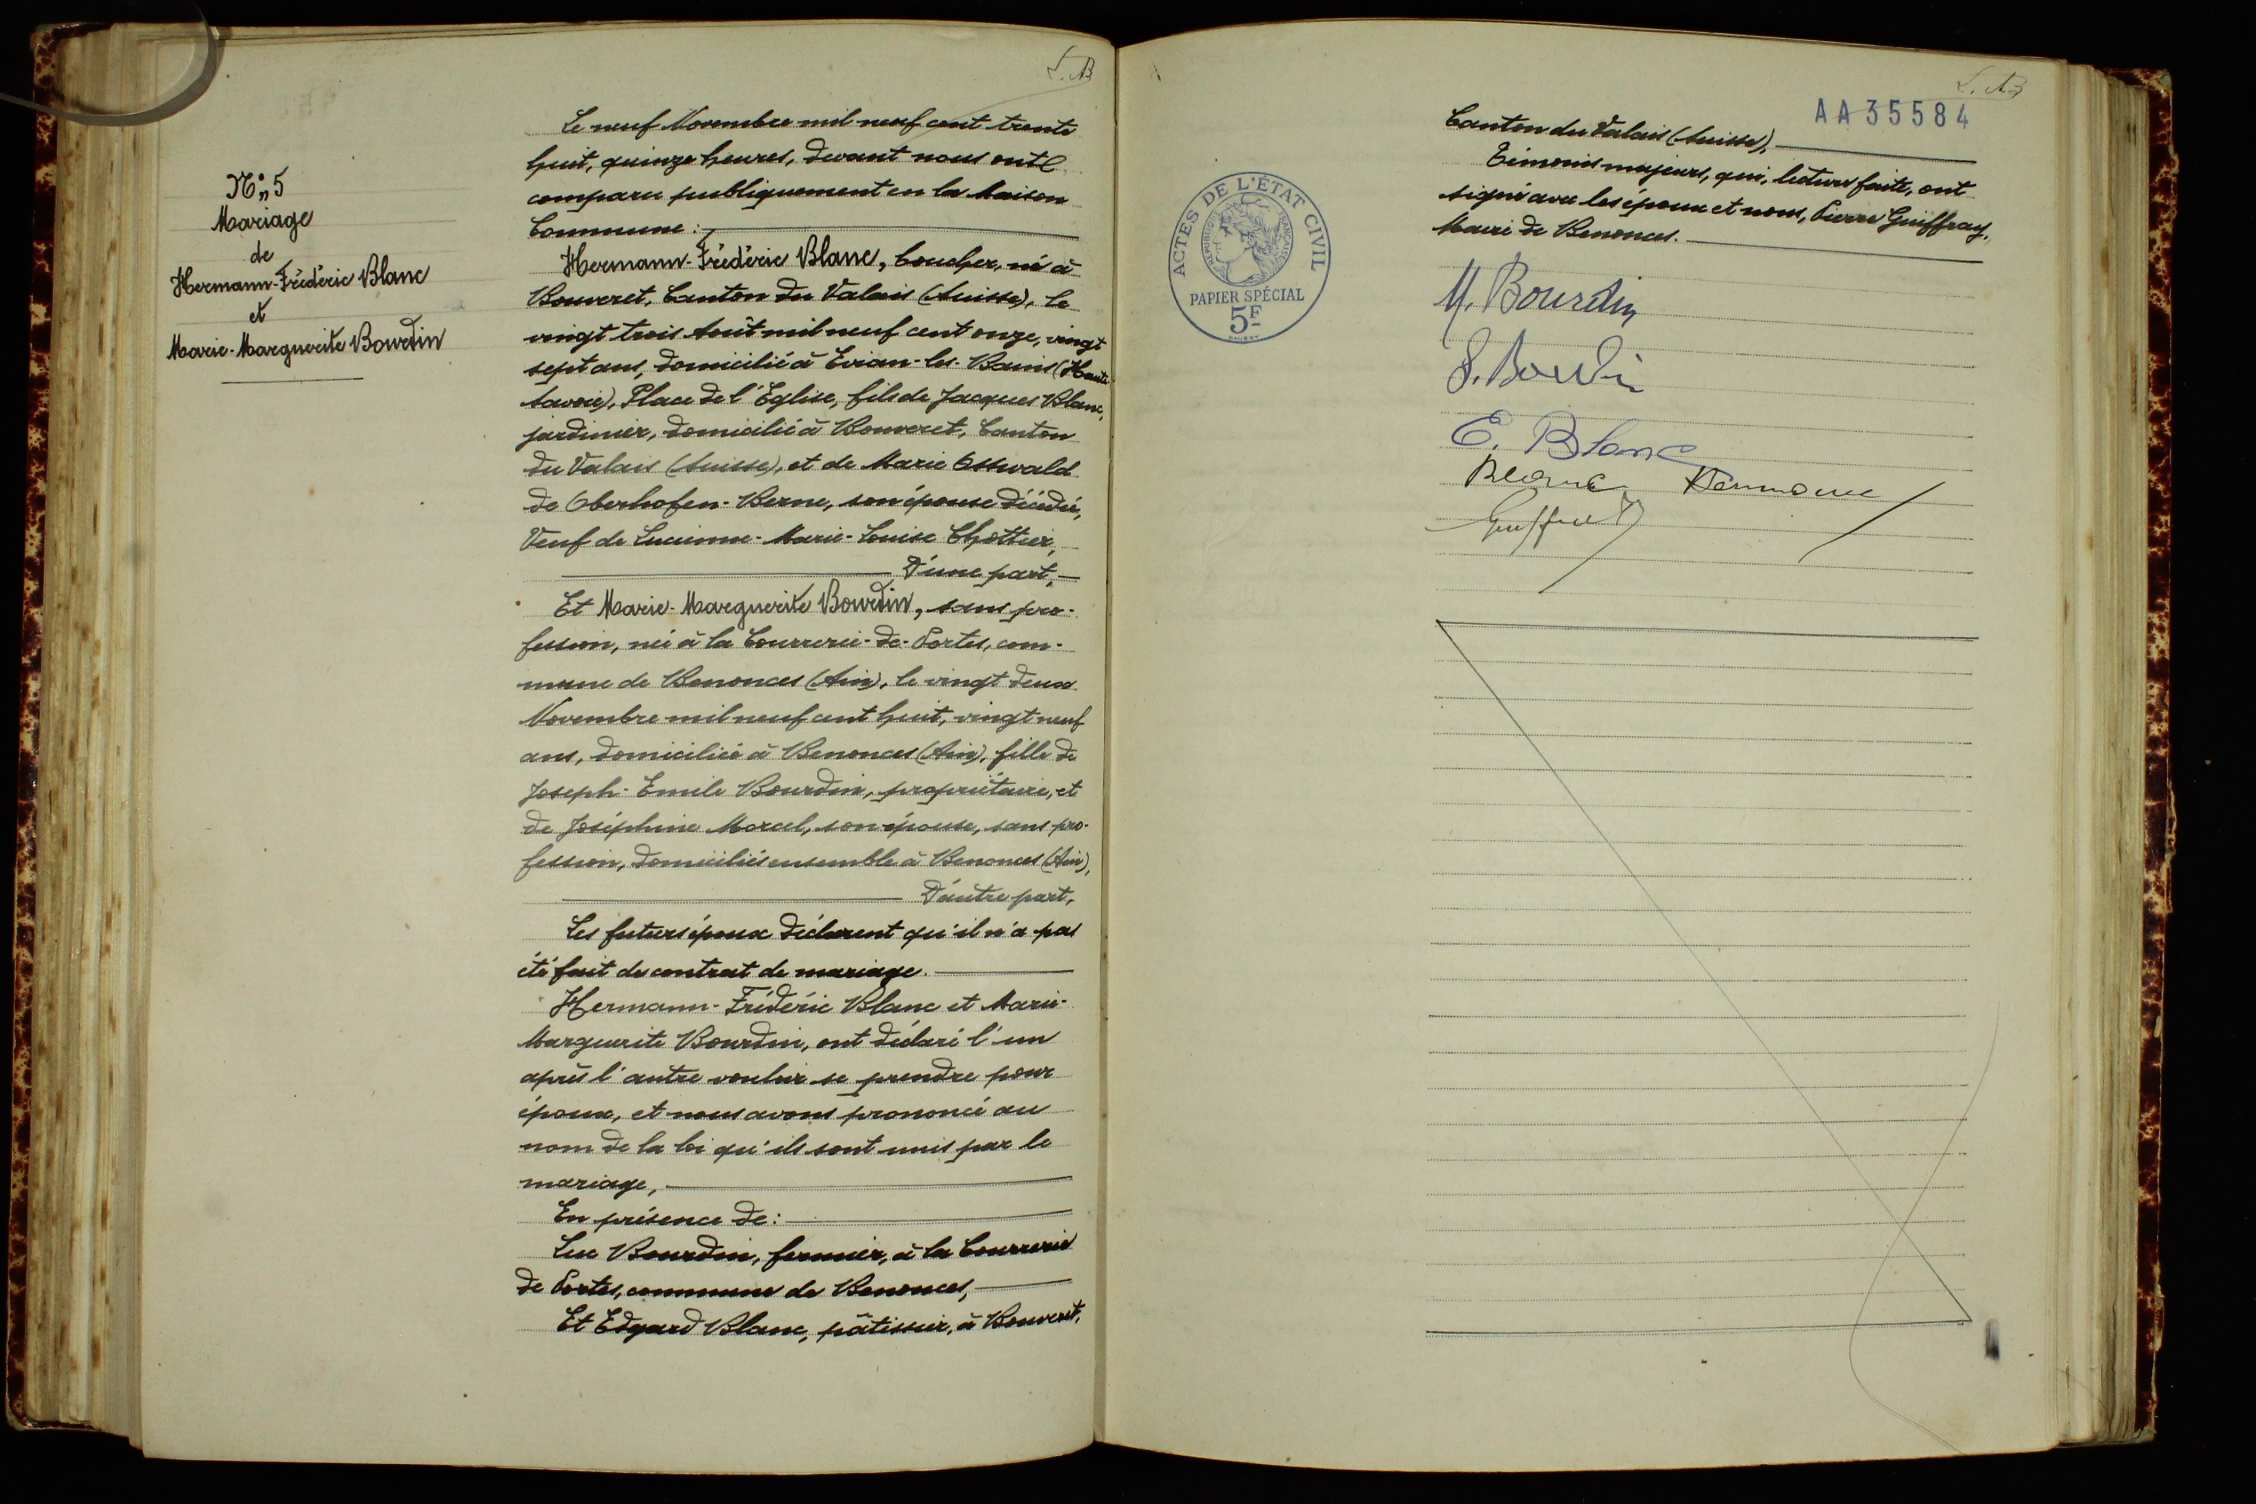 L. B
N° 5
Mariage
de
Hermann-Frédéric Blanc
et
Marie-Marguerite Bourdin
Le neuf Novembre mil neuf cent trente
huit, quinze heures, devant nous ont
comparu publiquement en la Maison
Commune :
Hermann-Frédéric Blanc, boucher, né à
Bouveret, Canton du Valais (Suisse), le
vingt trois Août mil neuf cent onze, vingt
sept ans, domicilié à Evian-les-Bains (Haute
Savoie), Place de l'Eglise, fils de Jacques Blanc,
jardinier, domicilié à Bouveret, Canton
du Valais (Suisse), et de Marie Osswald
de Oberhofen-Berne, son épouse décédée,
Veuf de Lucienne-Marie-Louise Chottier,
D'une part,
Et Marie-Marguerite Bourdin, sans pro-
fession, née à la Courrerie-de-Portes, com-
mune de Benonces (Ain), le vingt deux
Novembre mil neuf cent huit, vingt neuf
ans, domiciliée à Benonces (Ain), fille de
Joseph-Emile Bourdin, propriétaire, et
de Joséphine Morcel, son épouse, sans pro-
fession, domiciliés ensemble à Benonces (Ain),
D'autre part,
Les futurs époux déclarent qu'il n'a pas
été fait de contrat de mariage.
Hermann-Frédéric Blanc et Marie-
Marguerite Bourdin, ont déclaré l'un
après l'autre vouloir se prendre pour
époux, et nous avons prononcé au
nom de la loi qu'ils sont unis par le
mariage,
En présence de :
Luc Bourdin, fermier, à la Courrerie
de Portes, commune de Benonces,
Et Edgard Blanc, pâtissier, à Bouveret,
L. B
AA35584
ACTES DE L'ÉTAT CIVIL
RÉPUBLIQUE FRANÇAISE
PAPIER SPÉCIAL
5F
Canton du Valais (Suisse),
Témoins majeurs, qui, lecture faite, ont
signé avec les époux et nous, Pierre Guiffray,
Maire de Benonces.
M. Bourdin
L. Bourdin
E. Blanc
Blanc Hermann
Guiffray